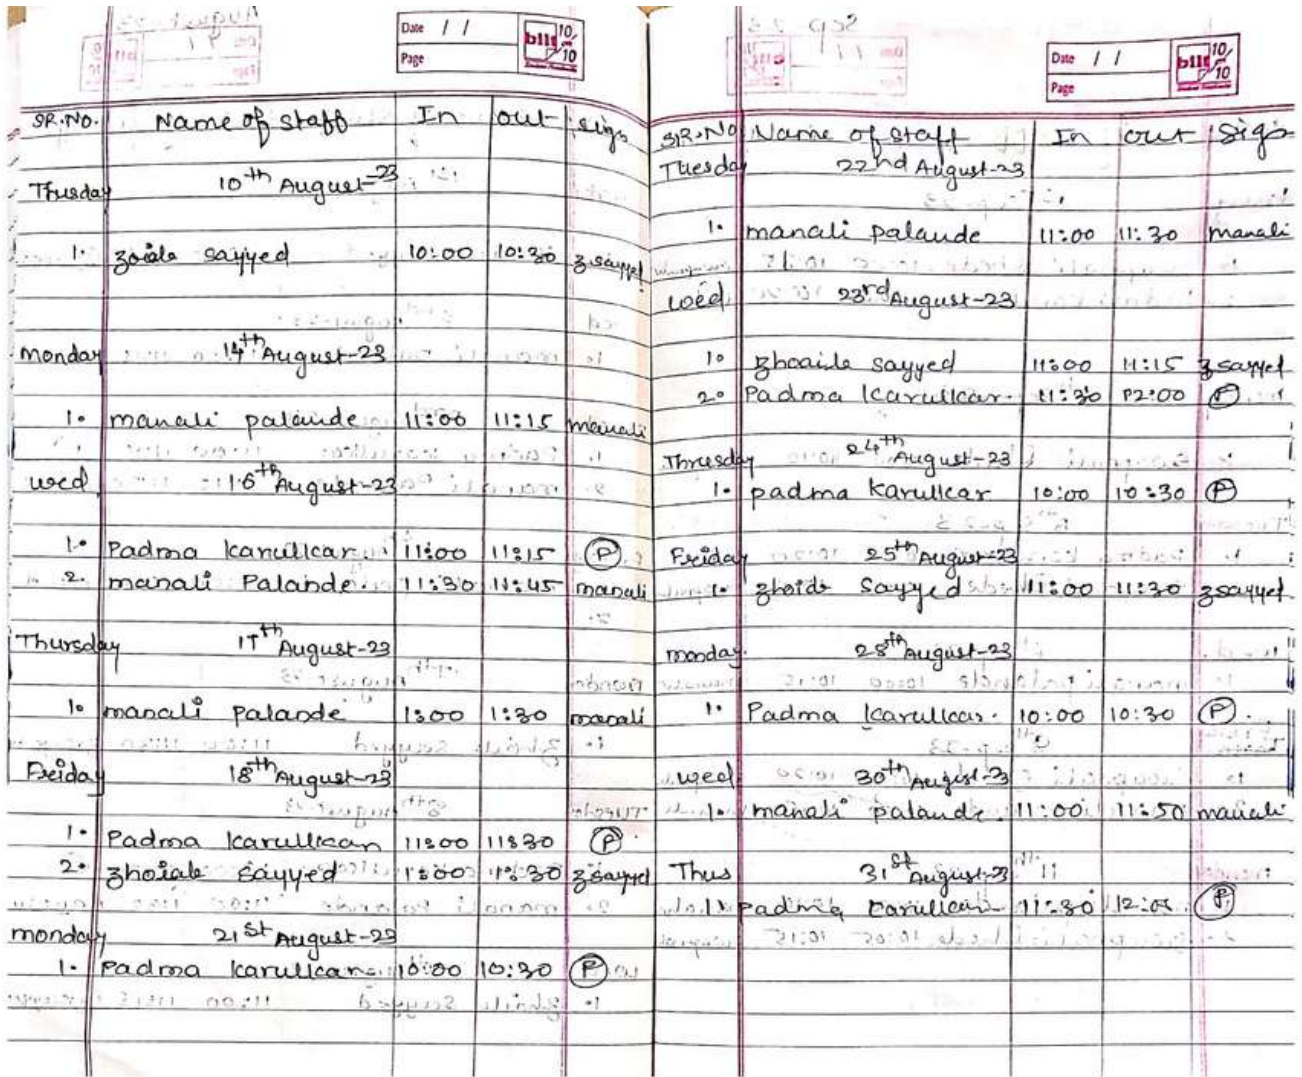 Date / /
Page
bilt 10/10
SR.No. Name of staff In out sign
Thusday 10th August-23
1. zoiale sayyed 10:00 10:30 zsayyed
monday 14th August-23
1. manali palande 11:00 11:15 manali
wed 16th August-23
1. Padma karulkar 11:00 11:15 P
2. manali Palande. 11:30 11:45 manali
Thursday 17th August-23
1. manali palande 1:00 1:30 manali
Friday 18th August-23
1. Padma karulkar 11:00 11:30 P
2. zhoiale sayyed 1:00 1:30 zsayyed
monday 21st August-23
1. Padma karulkar 10:00 10:30 P
Date / /
Page
bilt 10/10
SR.No Name of staff In out sign
Tuesday 22nd August-23
1. manali palande 11:00 11:30 manali
wed 23rd August-23
1. zhoaile sayyed 11:00 11:15 zsayyed
2. Padma karulkar. 11:30 P2:00 P
Thresday 24th August-23
1. padma karulkar 10:00 10:30 P
Friday 25th August-23
1. zhoide sayyed 11:00 11:30 zsayyed
monday 28th August-23
1. Padma karulkar. 10:00 10:30 P
wed 30th August-23
1. manali palande. 11:00 11:50 manali
Thus 31st August-23
1. padma karulkar 11:30 P